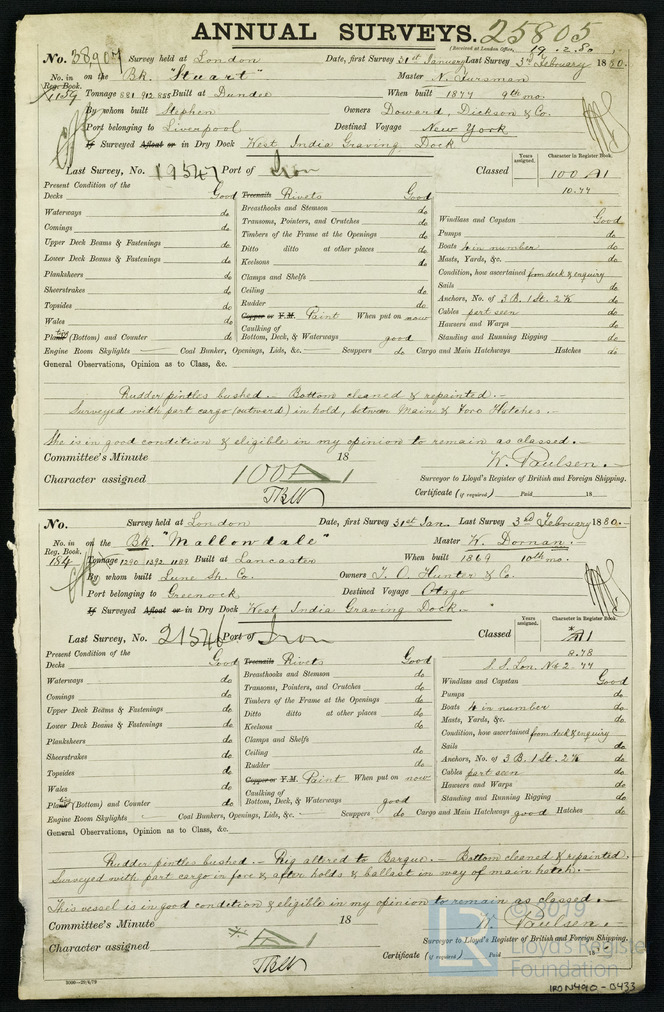 ANNUAL SURVEYS. 25805
(Received at London Office, 19.2.80
No. 38907 Survey held at London Date, first Survey 31st January Last Survey 3rd February 1880.
No. in Reg. Book. on the Bk. "Stuart" Master N.
Tonnage 881 912 855 Built at Dundee When built 1877 9th mo.
By whom built Stephen Owners Doward, Dickson & Co.
Port belonging to Liverpool Destined Voyage New York
If Surveyed Afloat or in Dry Dock West India Graving Dock
Last Survey, No. 19547 Port of Iron Classed Years assigned. Character in Register Book. 100 A1
10.77
Present Condition of the
Decks Good Treenails Rivets Good
Waterways do Breasthooks and Stemson do Windlass and Capstan Good
Comings do Transoms, Pointers, and Crutches do Pumps do
Upper Deck Beams & Fastenings do Timbers of the Frame at the Openings do Boats 4 in number do
Lower Deck Beams & Fastenings do Ditto ditto at other places do Masts, Yards, &c. do
Planksheers do Keelsons do Condition, how ascertained from deck & enquiry
Sheerstrakes do Clamps and Shelfs Sails do
Topsides do Ceiling do Anchors, No. of 3 B. 1 St. 2 K do
Wales do Rudder do Cables part seen do
Plating (Bottom) and Counter do Copper or Y.M. Paint When put on now Hawsers and Warps do
Caulking of Bottom, Deck, & Waterways good Standing and Running Rigging do
Engine Room Skylights — Coal Bunker, Openings, Lids, &c. — Scuppers do Cargo and Main Hatchways Hatches do
General Observations, Opinion as to Class, &c.
Rudder pintles bushed. — Bottom cleaned & repainted. —
Surveyed with part cargo (outward) in hold, between Main & Fore Hatches. —
She is in good condition & eligible in my opinion to remain as classed. —
Committee's Minute 18 W. Paulsen. —
Character assigned 100 A 1 Surveyor to Lloyd's Register of British and Foreign Shipping.
Certificate (if required) Paid 18
No. Survey held at London Date, first Survey 31st Jan. Last Survey 3rd February 1880. —
No. in Reg. Book. on the Bk. "Mallowdale" Master W. Dornan.
184 Tonnage 1290 1392 1189 Built at Lancaster When built 1869 10th mo.
By whom built Lune Sh. Co. Owners T. O. Hunter & Co.
Port belonging to Greenock Destined Voyage Otago
If Surveyed Afloat or in Dry Dock West India Graving Dock. —
Last Survey, No. 21546 Port of Iron Classed Years assigned. Character in Register Book. A1
8.78
S.S. Lon. No 2. 77
Present Condition of the
Decks Good Treenails Rivets Good
Waterways do Breasthooks and Stemson do Windlass and Capstan Good
Comings do Transoms, Pointers, and Crutches do Pumps do
Upper Deck Beams & Fastenings do Timbers of the Frame at the Openings do Boats 4 in number do
Lower Deck Beams & Fastenings do Ditto ditto at other places do Masts, Yards, &c. do
Planksheers do Keelsons do Condition, how ascertained from deck & enquiry
Sheerstrakes do Clamps and Shelfs Sails do
Topsides do Ceiling do Anchors, No. of 3 B. 1 St. 2 K do
Wales do Rudder do Cables part seen do
Plating (Bottom) and Counter do Copper or Y.M. Paint When put on now Hawsers and Warps do
Caulking of Bottom, Deck, & Waterways good Standing and Running Rigging do
Engine Room Skylights — Coal Bunkers, Openings, Lids, &c. — Scuppers do Cargo and Main Hatchways good Hatches do
General Observations, Opinion as to Class, &c.
Rudder pintles bushed. — Rig altered to Barque. — Bottom cleaned & repainted. —
Surveyed with part cargo in fore & after holds & ballast in way of main hatch. —
This vessel is in good condition & eligible in my opinion to remain as classed. —
Committee's Minute 18 W. Paulsen. —
Character assigned A 1 Surveyor to Lloyd's Register of British and Foreign Shipping.
Certificate (if required) Paid 18
© 2019
LR Lloyd's Register Foundation
IRON490-0433